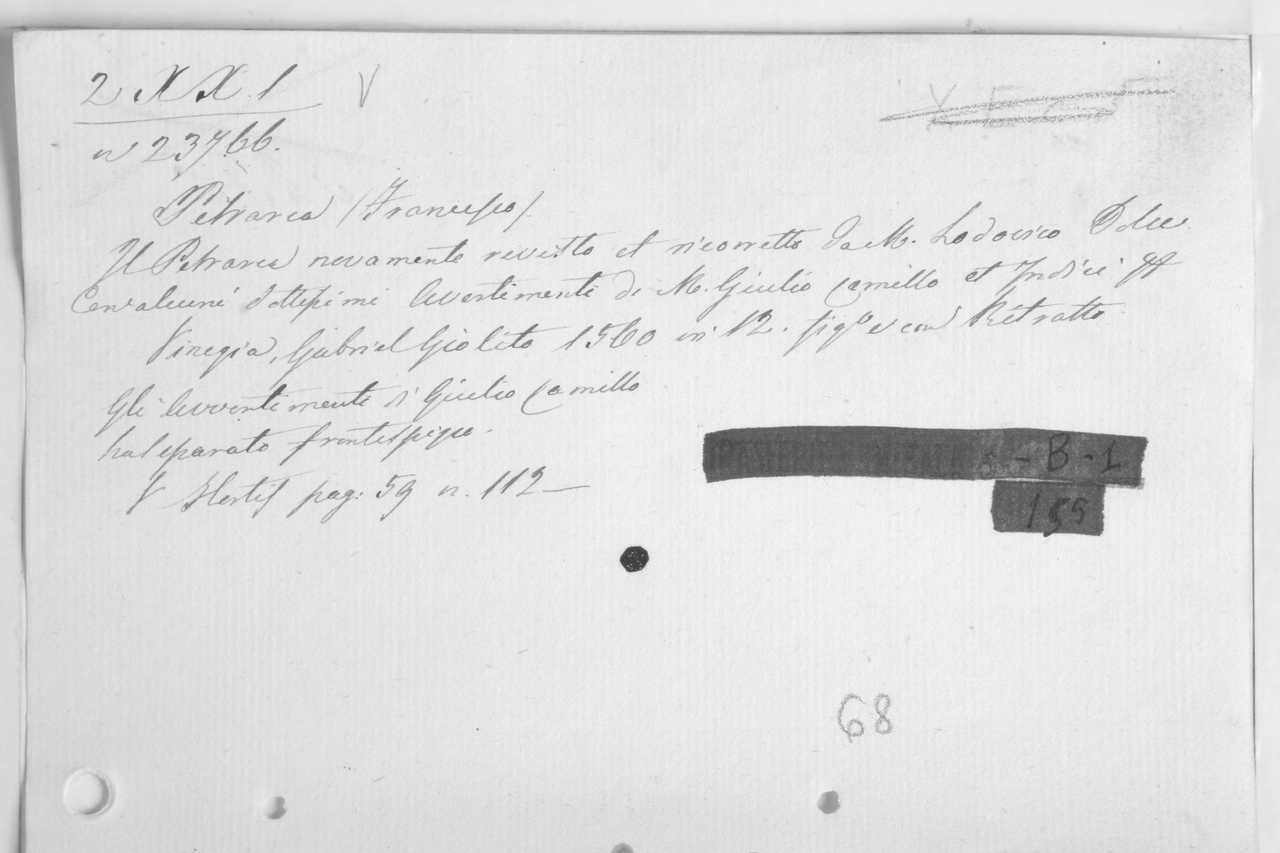 2 XX. 1 V
n 23766.
Petrarca (Francesco)
Il Petrarca novamente revisto et ricorretto da M. Lodovico Dolce
Con alcuni dottissimi avertimenti di M. Giulio Camillo et Indici
Vinegia, Gabriel Giolito 1560 in 12. fig.º e con Ritratto
Gli avvertimenti di Giulio Camillo
ha separato frontespizio.
V pag: 59 n. 112 —
- B - 1
155
68